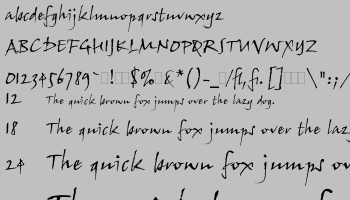 abcdefghijklmnopqrstuvwxyz
ABCDEFGHIJKLMNOPQRSTUVWXYZ
0123456789` ! $% &*()-_ /fl,fi. [] \":;/
12 The quick brown fox jumps over the lazy dog.
18 The quick brown fox jumps over the lazy
24 The quick brown fox jumps ov